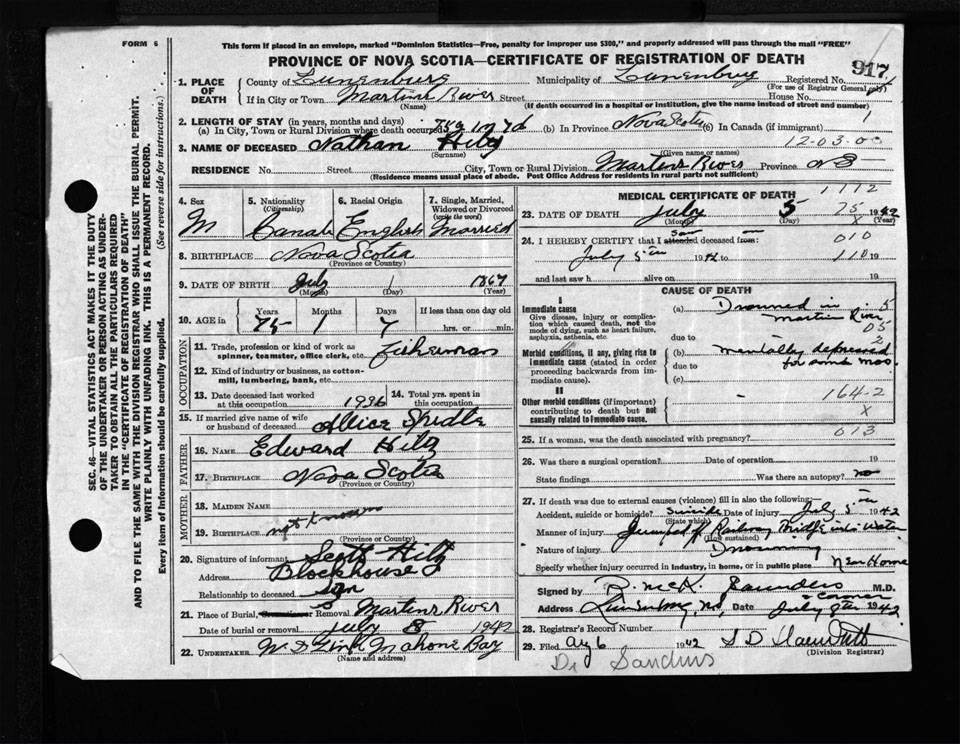 FORM 6
This form if placed in an envelope, marked "Dominion Statistics—Free, penalty for improper use $300," and properly addressed will pass through the mail "FREE"
PROVINCE OF NOVA SCOTIA—CERTIFICATE OF REGISTRATION OF DEATH
917
1. PLACE OF DEATH
County of Lunenburg Municipality of Lunenburg Registered No.
(For use of Registrar General only)
If in City or Town Martins River Street House No.
(Name) (If death occurred in a hospital or institution, give the name instead of street and number)
2. LENGTH OF STAY (in years, months and days)
(a) In City, Town or Rural Division where death occurred 75y 1m 7d (b) In Province Nova Scotia (c) In Canada (if immigrant)
1
12-03-00
3. NAME OF DECEASED Nathan Hiltz
(Surname) (Given name or names)
RESIDENCE No. Street City, Town or Rural Division Martins River Province NS
(Residence means usual place of abode. Post Office Address for residents in rural parts not sufficient)
4. Sex M
5. Nationality (Citizenship)
6. Racial Origin English
7. Single, Married, Widowed or Divorced (write the word) Married
8. BIRTHPLACE Nova Scotia
(Province or Country)
9. DATE OF BIRTH 1867
(Month) (Day) (Year)
10. AGE in Years 75 Months 1 Days 7 If less than one day old hrs. or min.
OCCUPATION
11. Trade, profession or kind of work as spinner, teamster, office clerk, etc. Fisherman
12. Kind of industry or business, as cotton-mill, lumbering, bank, etc.
13. Date deceased last worked at this occupation 1936
14. Total yrs. spent in this occupation
15. If married give name of wife or husband of deceased
FATHER
16. NAME Edward Hiltz
17. BIRTHPLACE Nova Scotia
(Province or Country)
MOTHER
18. MAIDEN NAME
19. BIRTHPLACE not known
(Province or Country)
20. Signature of informant Scott Hiltz
Address Blockhouse
Relationship to deceased Son
21. Place of Burial, Cremation or Removal Martins River
Date of burial or removal July 8 1942
22. UNDERTAKER Mahone Bay
(Name and address)
MEDICAL CERTIFICATE OF DEATH
1112
23. DATE OF DEATH July 5 75 1942
(Month) (Day) (Year)
X
24. I HEREBY CERTIFY that I attended saw deceased from: 010
July 5th 1942 to 110 19
and last saw h alive on 19
CAUSE OF DEATH
I
Immediate cause
Give disease, injury or complication which caused death, not the mode of dying, such as heart failure, asphyxia, asthenia, etc.
(a) Drowned in
Martins River
due to
Morbid conditions, if any, giving rise to immediate cause (stated in order proceeding backwards from immediate cause).
(b) mentally depressed
due to for some mos.
(c)
II
Other morbid conditions (if important) contributing to death but not causally related to immediate cause.
164-2
X
613
25. If a woman, was the death associated with pregnancy?
26. Was there a surgical operation? Date of operation 19
State findings Was there an autopsy? no
27. If death was due to external causes (violence) fill in also the following:—
Accident, suicide or homicide? Suicide Date of injury July 5th 1942
(State which)
Manner of injury Jumped off Railway Bridge into Water
(How sustained)
Nature of injury Drowning
Specify whether injury occurred in industry, in home, or in public place Near Home
Signed by R. McK. Saunders M.D.
Coroner
Address Lunenburg NS Date July 1942
28. Registrar's Record Number
29. Filed Aug 6 1942
(Division Registrar)
Dr
SEC. 46—VITAL STATISTICS ACT MAKES IT THE DUTY
OF THE UNDERTAKER OR PERSON ACTING AS UNDERTAKER
TO OBTAIN ALL THE PARTICULARS REQUIRED
IN THE "CERTIFICATE OF REGISTRATION OF DEATH"
AND TO FILE THE SAME WITH THE DIVISION REGISTRAR WHO SHALL ISSUE THE BURIAL PERMIT.
WRITE PLAINLY WITH UNFADING INK. THIS IS A PERMANENT RECORD.
Every item of Information should be carefully supplied. (See reverse side for instructions.)